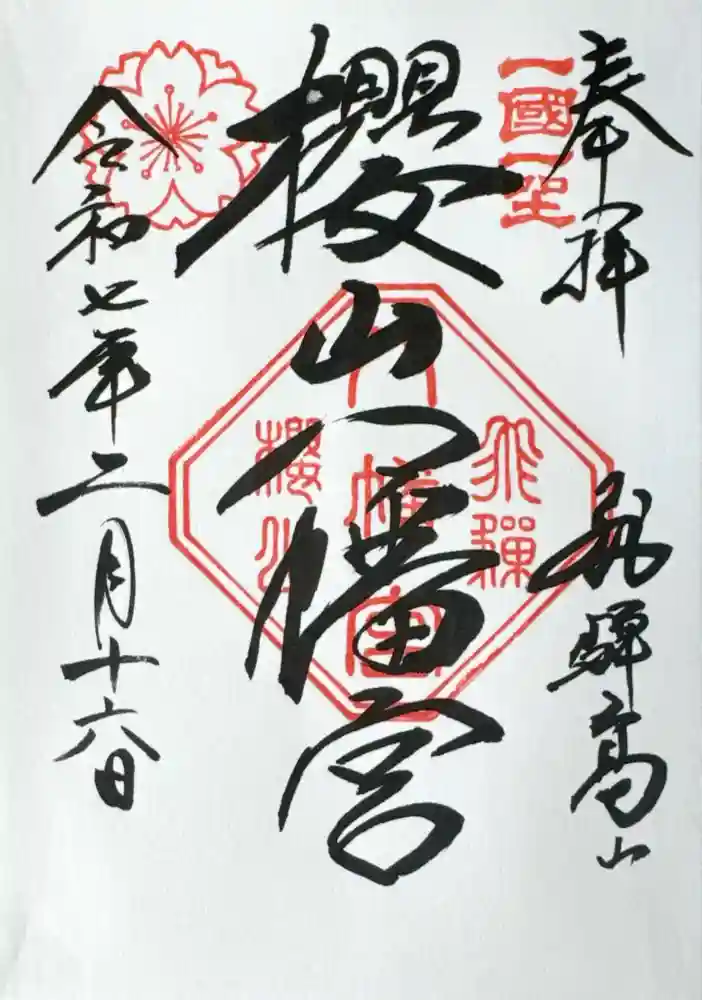 奉拝
飛騨高山
一國一社
櫻山八幡宮
飛騨
八幡宮
櫻山
令和七年二月十六日